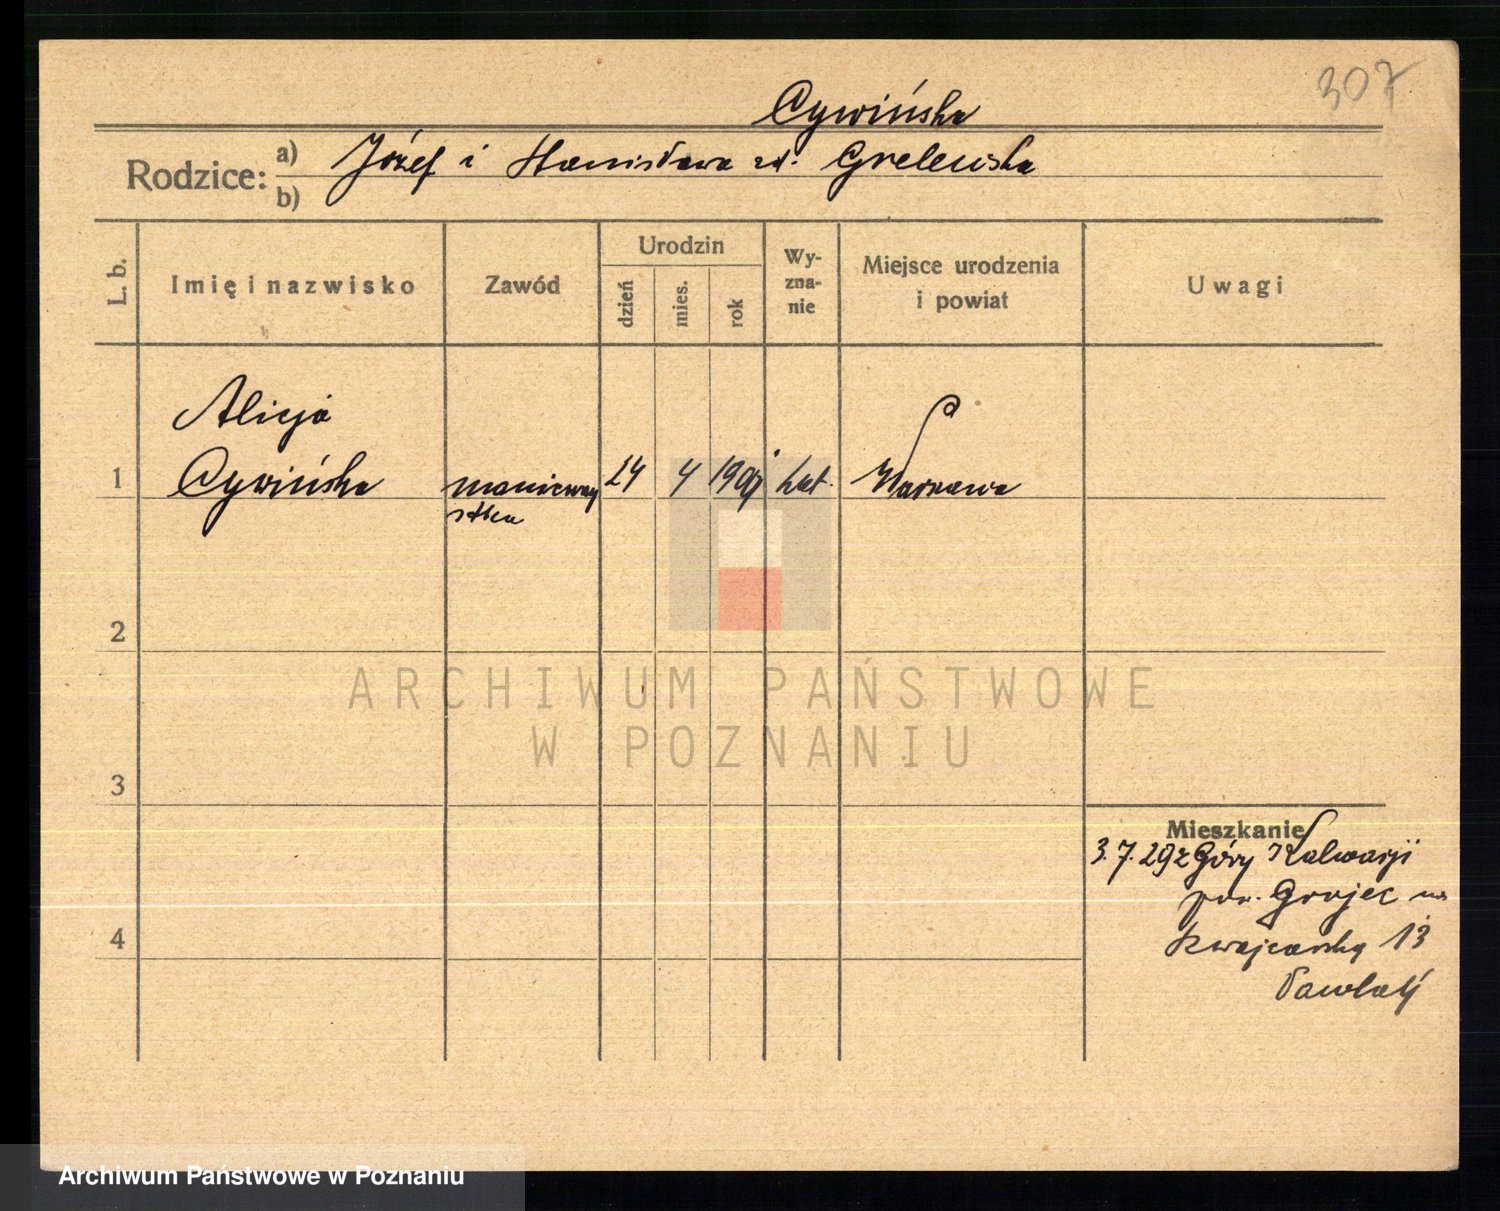 307
Cywińska
Rodzice: a) Józef i Stanisława zd. Grelewska
b)
L. b. Imię i nazwisko Zawód Urodzin dzień mies. rok Wy-zna-nie Miejsce urodzenia i powiat Uwagi
Alicja
1 Cywińska 24 4 kat. Warszawa
2
ARCHIWUM PAŃSTWOWE
W POZNANIU
3
Mieszkanie
3.7.29 z Góry Kalwarji
pow. Grojec na
4
13
Archiwum Państwowe w Poznaniu